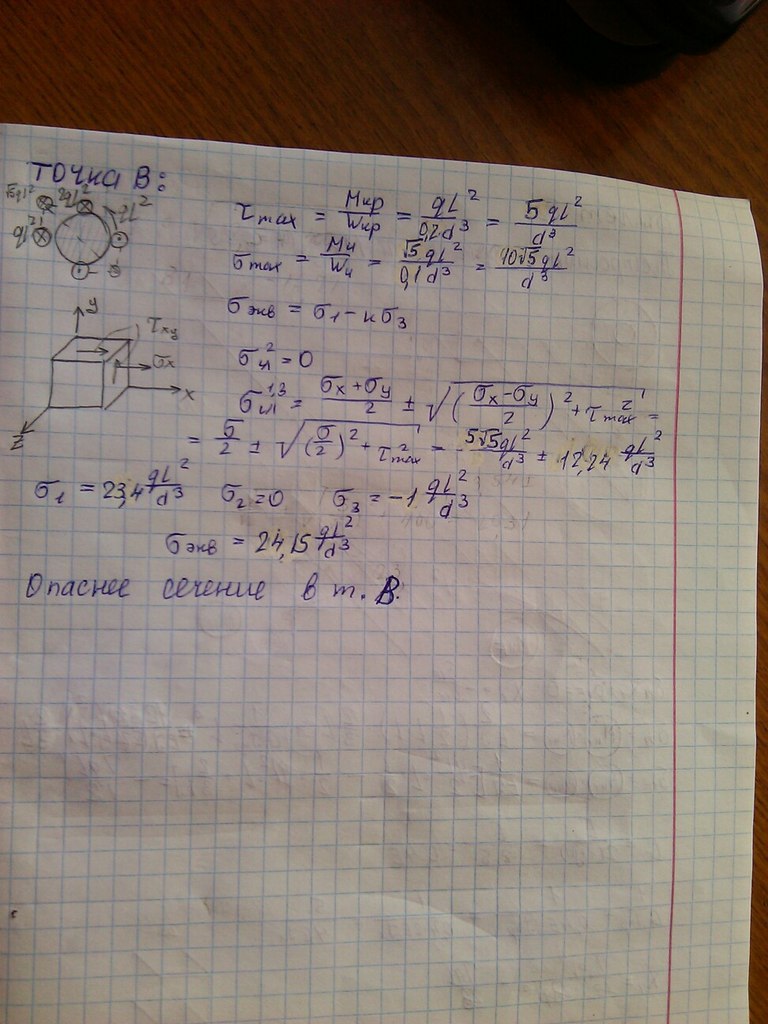 точка В:
√5ql² 2ql² ql²
ql²
τmax = Мкр/Wкр = ql²/0,2d³ = 5ql²/d³
σmax = Ми/Wи = √5ql²/0,1d³ = 10√5ql²/d³
σэкв = σ1 - кσ3
y τxy σx x z
σи² = 0
σи1,3 = (σx+σy)/2 ± √((σx-σy)/2)² + τmax² =
= σ/2 ± √(σ/2)² + τmax² = 5√5ql²/d³ ± 12,24 ql²/d³
σ1 = 23,4 ql²/d³ σ2=0 σ3 = -1 ql²/d³
σэкв = 24,15 ql²/d³
Опаснее сечение в т. В.